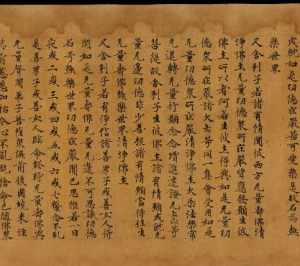 成就如是功德莊嚴甚可愛樂是故名為極
樂世界
又舍利子若諸有情聞彼西方无量壽佛清
淨佛土无量功德眾所莊嚴皆應發願生彼
佛土所以者何若生彼土得與如是无量功
德眾所莊嚴諸大士等同一集會受用如是
无量功德眾所莊嚴清淨佛土大乘法樂常
无退轉无量行願念念增進速證无上正等
菩提故舍利子生彼佛土諸有情類成就无
量无邊功德非少善根諸有情類當得往生
无量壽佛極樂世界清淨佛土
又舍利子若有淨信諸善男子或善女人得
聞如是无量壽佛无量无邊不可思議功德
名号極樂世界功德莊嚴聞已思惟若一日
夜或二或三或四或五或六或七繫念不亂
是善男子或善女人臨命終時无量壽佛與其
无量聲聞弟子菩薩眾俱前後圍繞來住其
前慈悲加祐令心不亂既捨命已隨佛眾